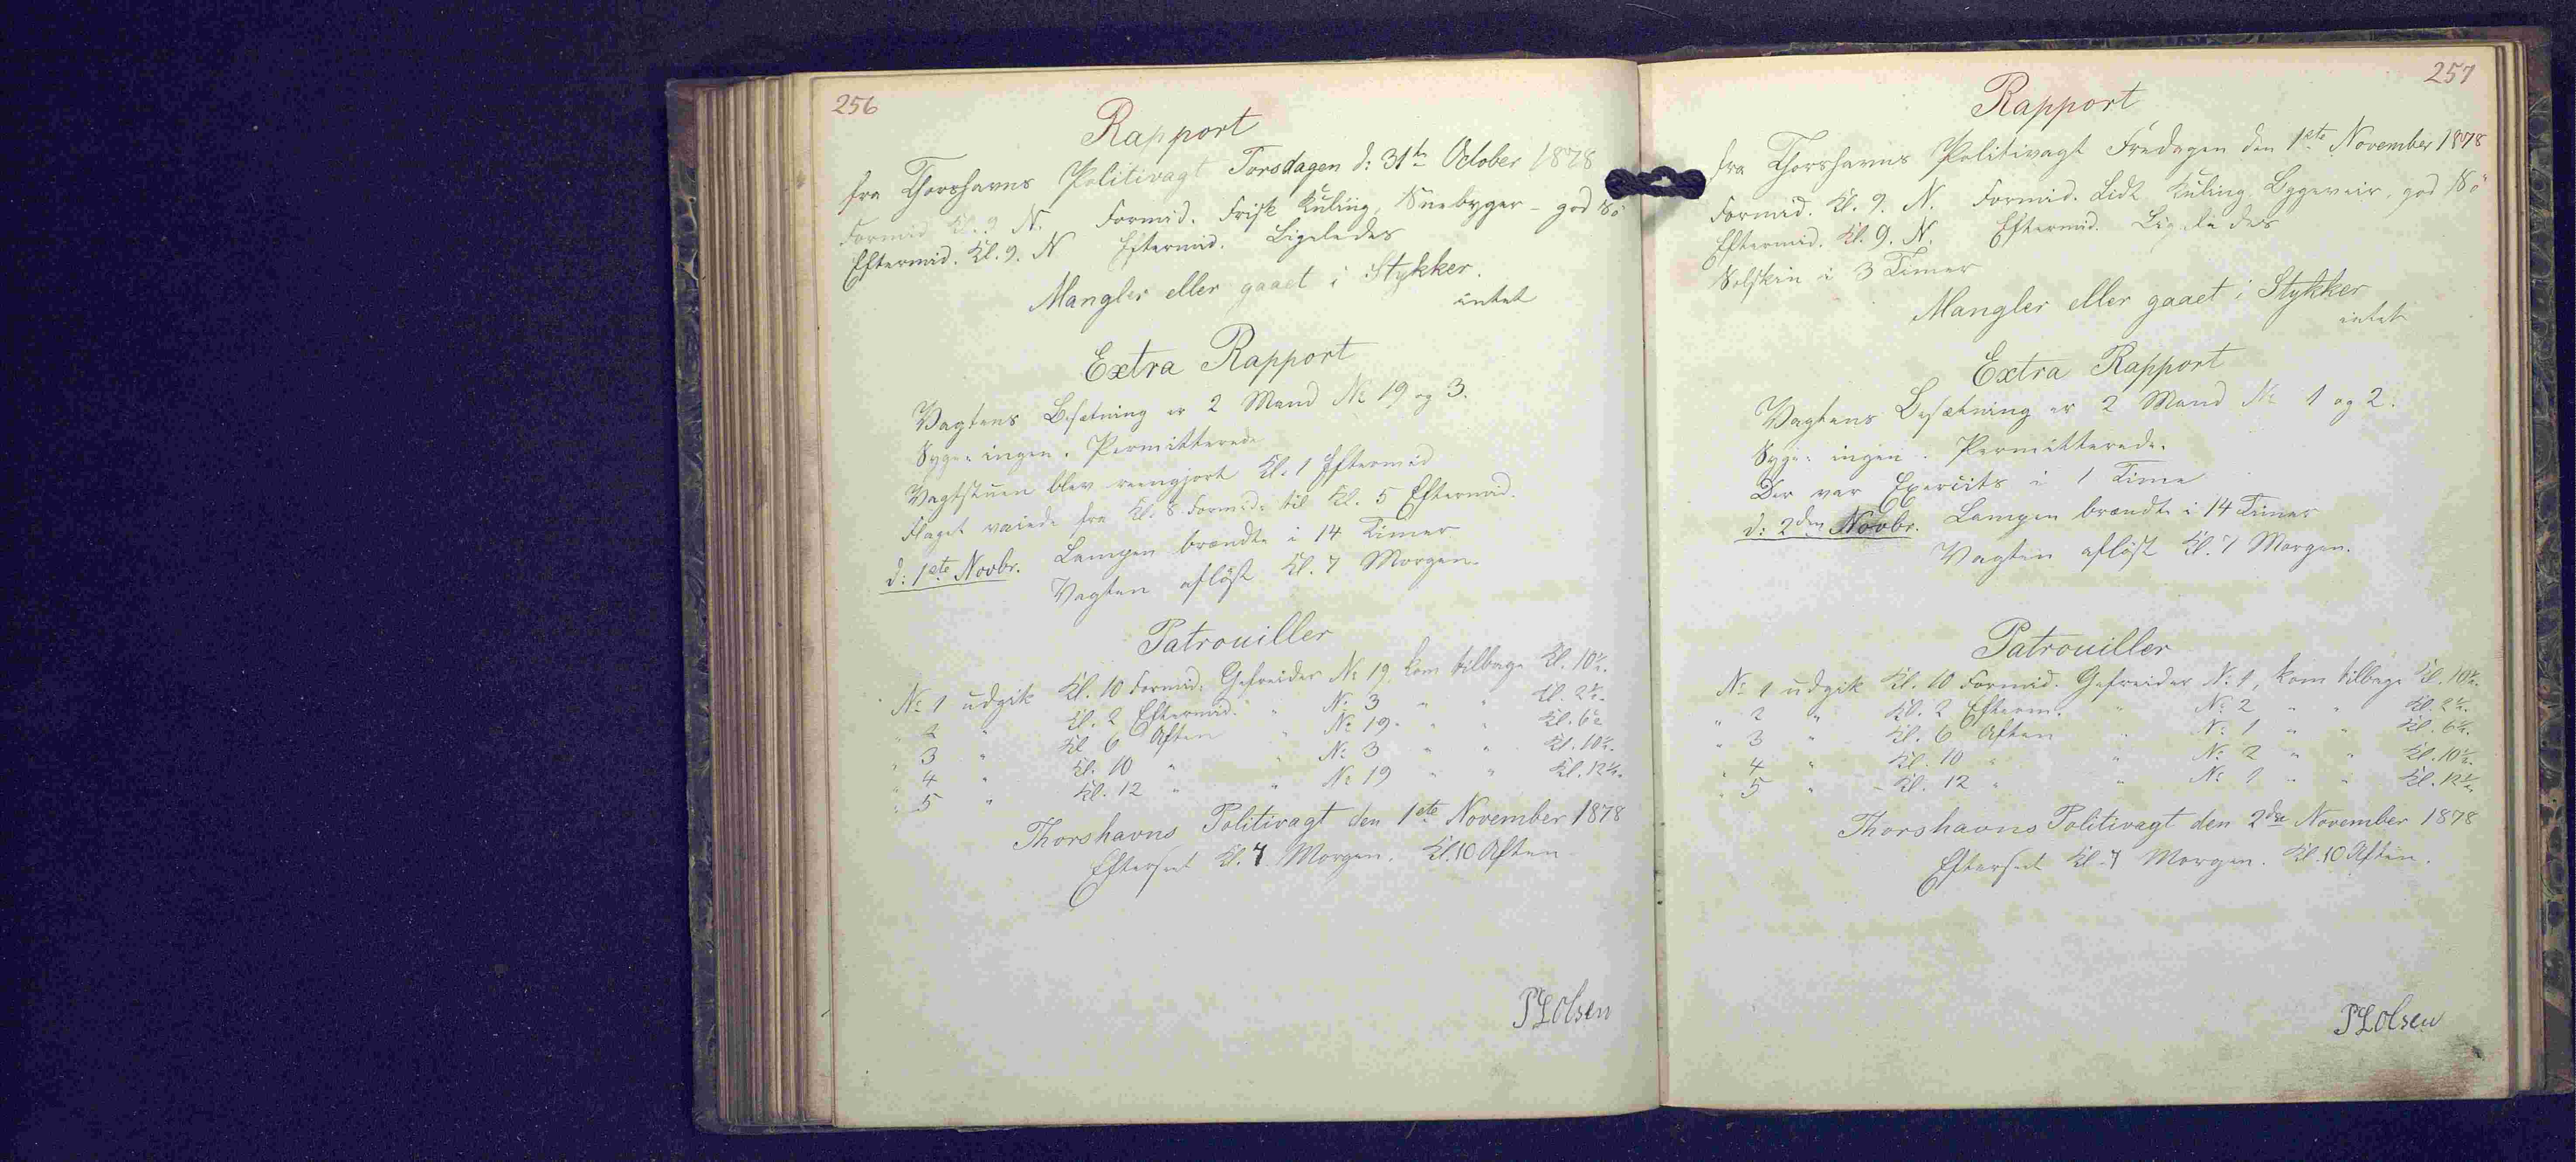 256
Rapport
fra Thorshavns Politivagt Torsdagen d: 31te October 1878
Formid. Kl. 9. N. Formid. Frisk Kuling, Sneebyger - god Sö
Eftermid. Kl. 9. N Eftermid. Ligeledes
Mangler eller gaaet i Stykker.
intet
Extra Rapport
Vagtens Besætning er 2 Mand No 19 og 3.
Syge: ingen. Permitterede
Vagtstuen blev reengjort Kl. 1 Eftermid
Flaget vaiede fra Kl. 8 Formid: til Kl. 5 Eftermid.
d: 1ste Novbr. Lampen brændte i 14 Timer
Vagten aflöst Kl. 7 Morgen.
Patrouiller
No 1 udgik Kl. 10 Formid: Gefreider No 19, kom tilbage Kl. 10½.
" 2 " Kl. 2 Eftermid. " No 3 " " Kl. 2½.
" 3 " Kl 6 Aften " No 19 " " Kl. 6½
" 4 " Kl. 10 " " No 3 " " Kl. 10½.
" 5 " Kl. 12 " " No 19 " " Kl. 12½.
Thorshavns Politivagt den 1ste November 1878
Efterseet Kl. 7 Morgen. Kl. 10 Aften
PLOlsen
257
Rapport
fra Thorshavns Politivagt Fredagen den 1ste November 1878
Formid. Kl. 9. N. Formid. Lidt Kuling Bygeveir, god Sö
Eftermid. Kl. 9. N. Eftermid. Ligeledes
Solskin i 3 Timer
Mangler eller gaaet i Stykker
intet
Extra Rapport
Vagtens Besætning er 2 Mand No 1 og 2.
Syge: ingen. Permitterede.
Der var Exercits i 1 Time
d: 2den Novbr. Lampen brændte i 14 Timer
Vagten aflöst Kl. 7 Morgen.
Patrouiller
No 1 udgik Kl. 10 Formid. Gefreider No 1, kom tilbage Kl. 10½.
" 2 " Kl. 2 Efterm. " No 2 " " Kl. 2½.
" 3 " Kl. 6 Aften " No 1 " " Kl. 6½.
" 4 " Kl. 10 " " No 2 " " Kl. 10½.
" 5 " Kl. 12 " " No 1 " " Kl. 12½
Thorshavns Politivagt den 2den November 1878
Efterseet Kl. 7 Morgen. Kl. 10 Aften.
PLOlsen